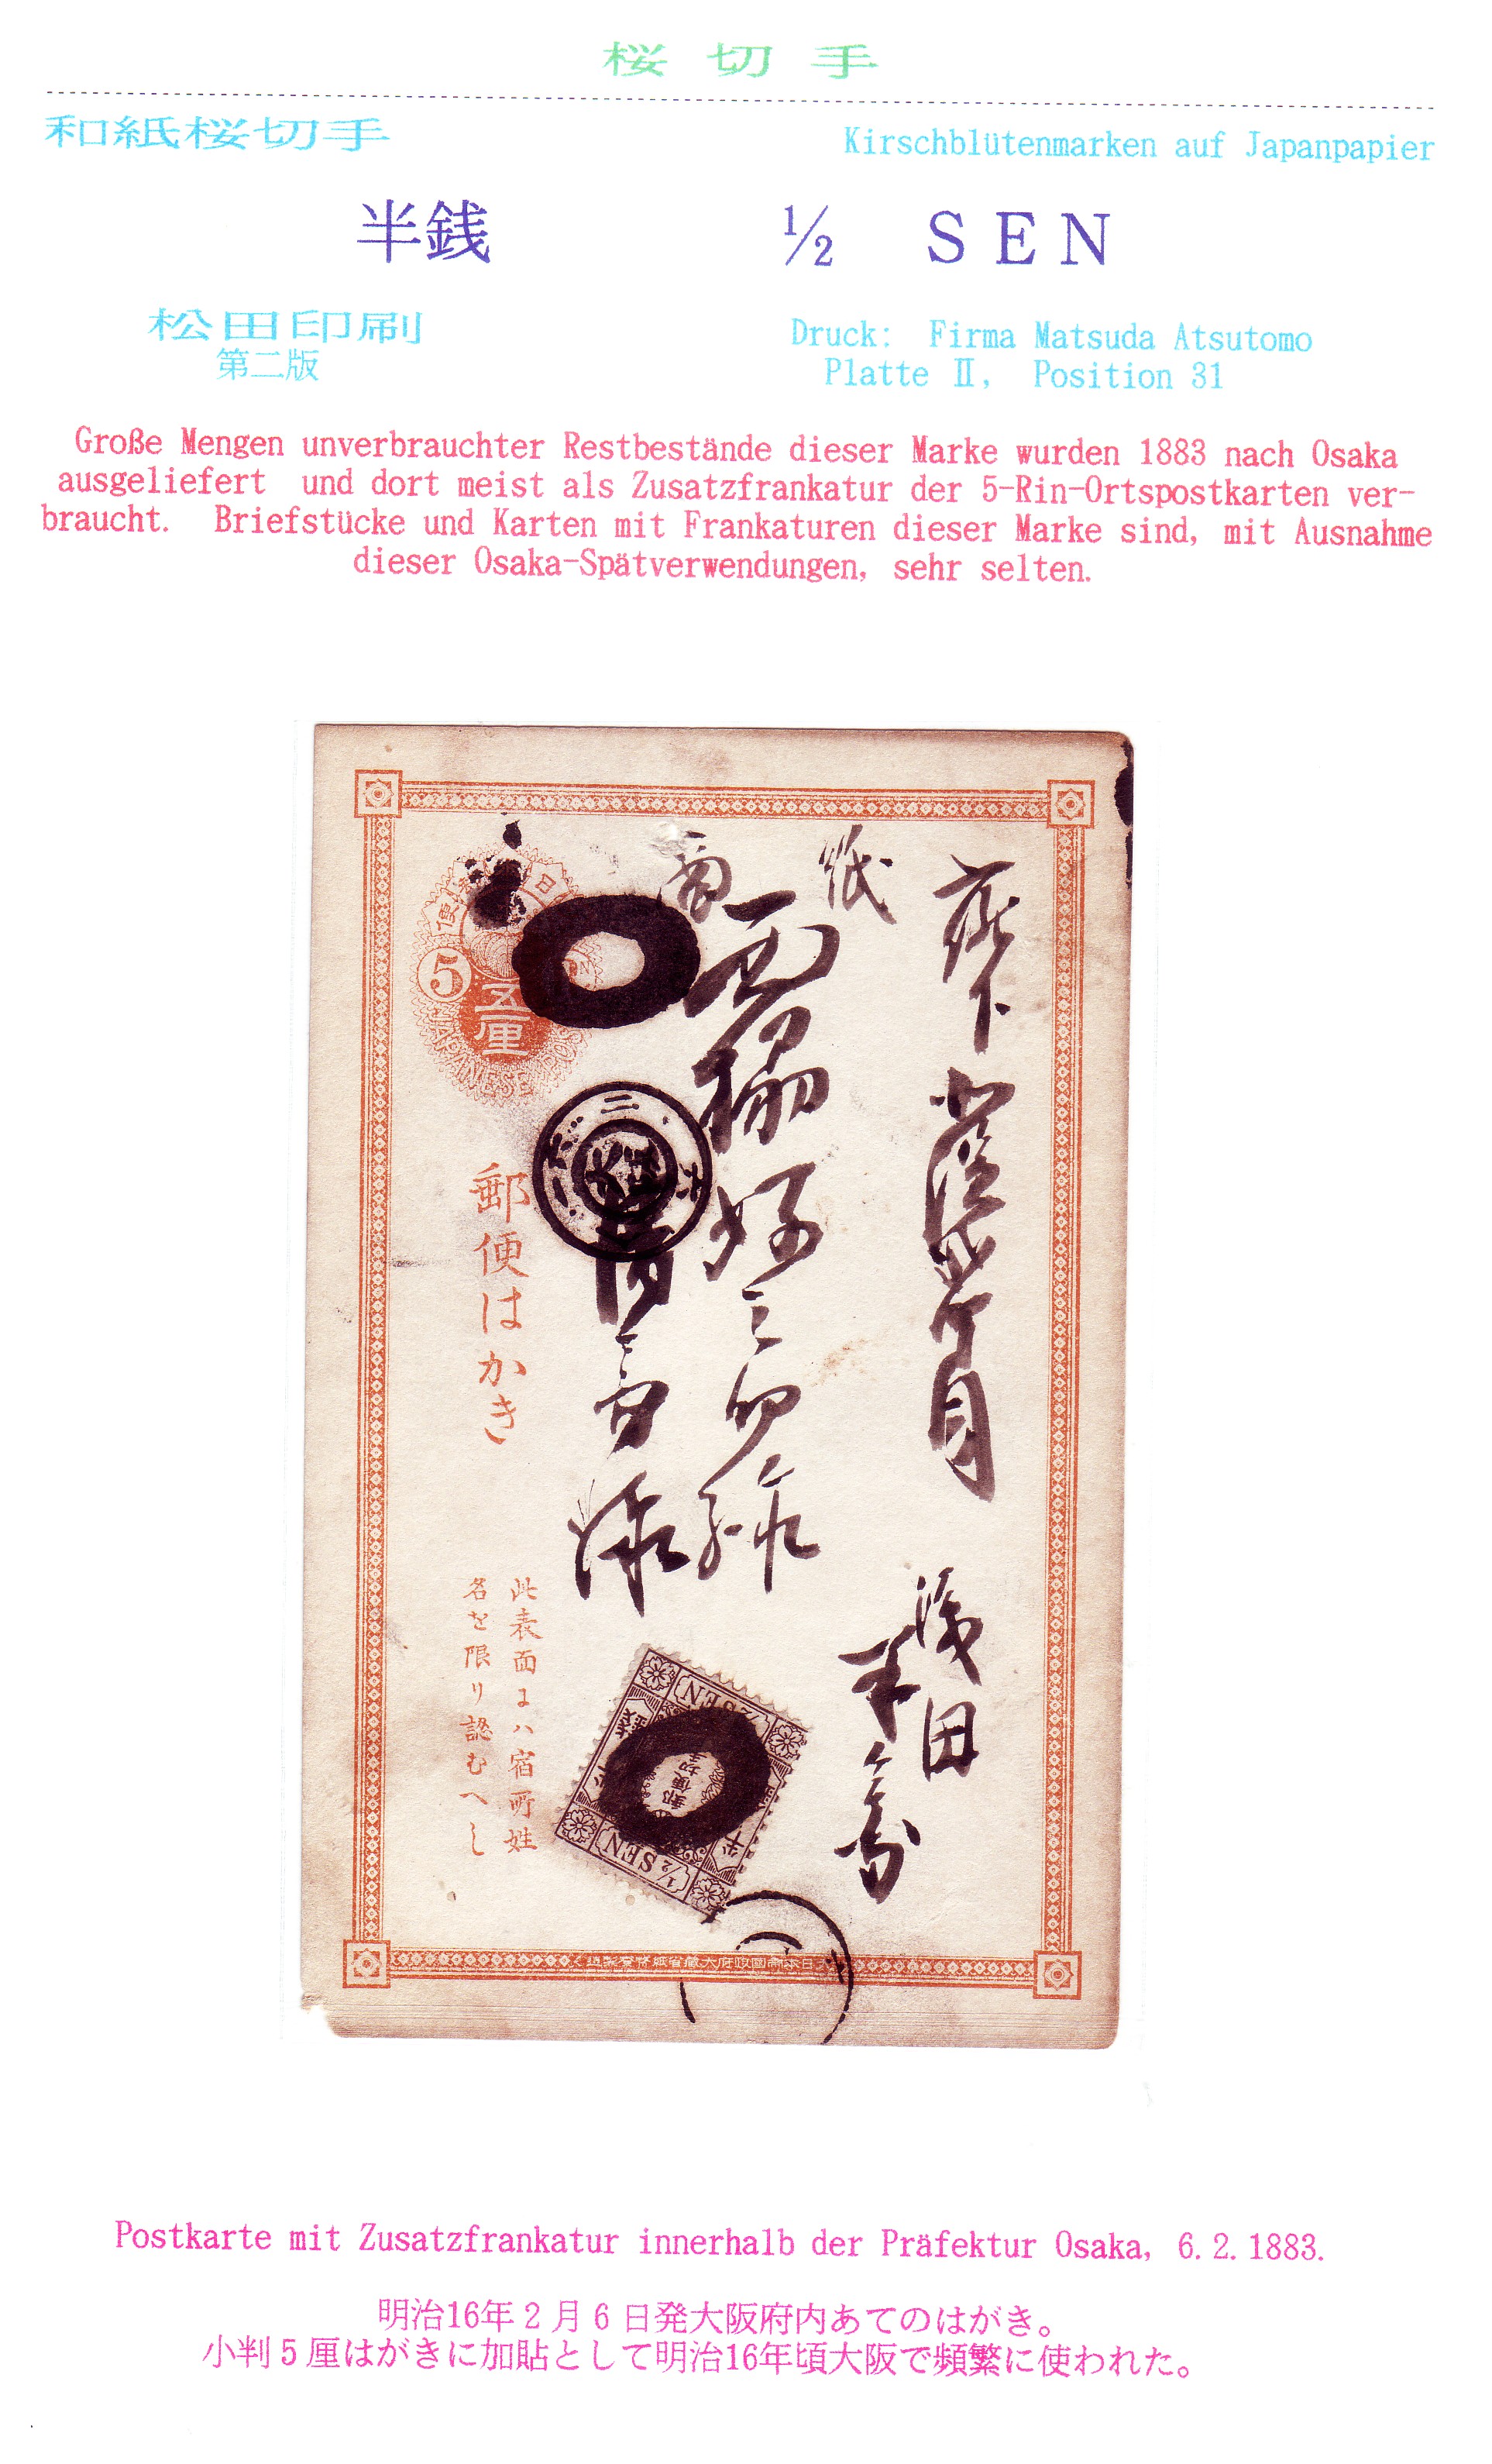 桜 切 手
和紙桜切手
Kirschblütenmarken auf Japanpapier
半銭
½ SEN
松田印刷
第二版
Druck: Firma Matsuda Atsutomo
Platte Ⅱ, Position 31
Große Mengen unverbrauchter Restbestände dieser Marke wurden 1883 nach Osaka
ausgeliefert und dort meist als Zusatzfrankatur der 5-Rin-Ortspostkarten ver-
braucht. Briefstücke und Karten mit Frankaturen dieser Marke sind, mit Ausnahme
dieser Osaka-Spätverwendungen, sehr selten.
浅田
5
五厘
JAPANESE POS
郵便はかき
此表面ヱハ宿所姓
名を限り認むへし
½ SEN
½ SEN
郵便切手
Postkarte mit Zusatzfrankatur innerhalb der Präfektur Osaka, 6.2.1883.
明治16年2月6日発大阪府内あてのはがき。
小判5厘はがきに加貼として明治16年頃大阪で頻繁に使われた。